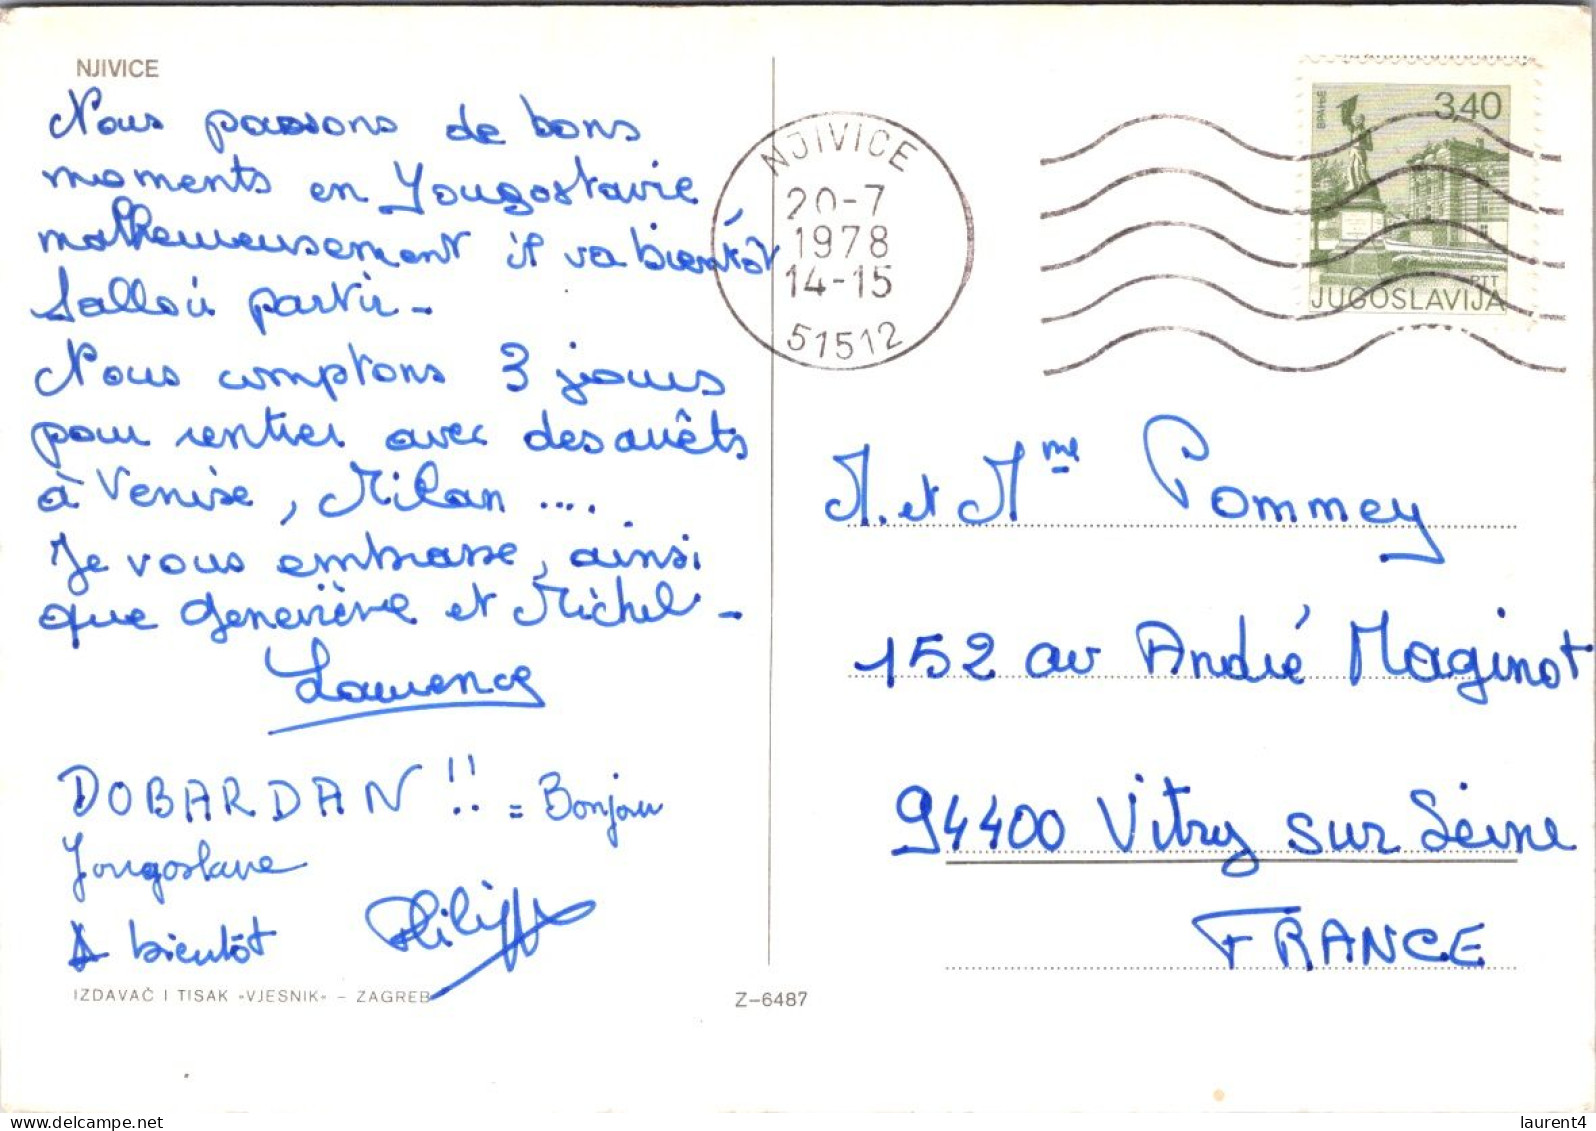 NJIVICE
Nous passons de bons
moments en Yougoslavie
malheureusement il va bientôt
falloir partir -
Nous comptons 3 jours
pour rentrer avec des arrêts
à Venise, Milan ....
Je vous embrasse, ainsi
que Geneviève et Michel -
Laurence
DOBARDAN !! = Bonjour
Yougoslave
A bientôt Philippe
IZDAVAČ I TISAK «VJESNIK» – ZAGREB
Z-6487
NJIVICE
20-7
1978
14-15
51512
ВРАЊЕ
3,40
PTT
JUGOSLAVIJA
M. et Mme Pommey
152 av André Maginot
94400 Vitry sur Seine
FRANCE
delcampe.net
laurent4